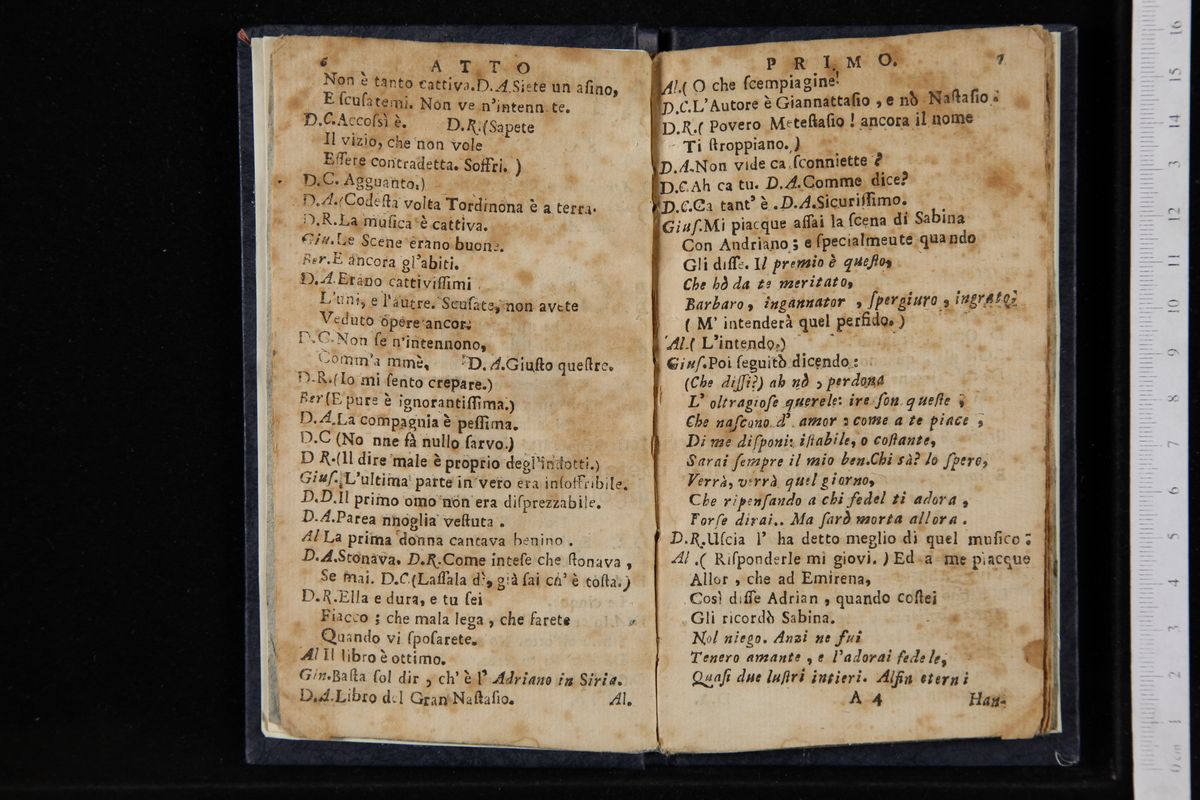 6 ATTO
Non è tanto cattiva. D.A. Siete un aſino,
E ſcuſatemi. Non ve n'intenn te.
D.C. Accoſsì è. D.R. (Sapete
Il vizio, che non vole
Eſſere contradetta. Soffri. )
D.C. Agguanto.)
D.A. (Codeſta volta Tordinona è a terra.
D.R. La muſica è cattiva.
Giu. Le Scene erano buone.
Ber. E ancora gl'abiti.
D.A. Erano cattiviſſimi
L'uni, e l'autre. Scuſate, non avete
Veduto opere ancor.
D.C. Non ſe n'intennono,
Comm'a mmè. D.A. Giuſto queſtre.
D.R. (Io mi ſento crepare.)
Ber (E pure è ignorantiſſima.)
D.A. La compagnia è peſſima.
D.C (No nne ſà nullo ſarvo.)
D R. (Il dire male è proprio degl'indotti.)
Giuſ. L'ultima parte in vero era inſoffribile.
D.D. Il primo omo non era diſprezzabile.
D.A. Parea nnoglia veſtuta .
Al La prima donna cantava benino .
D.A. Stonava. D.R. Come inteſe che ſtonava ,
Se mai. D.C (Laſſala dì, già ſai ch' è toſta.)
D.R. Ella e dura, e tu ſei
Fiacco ; che mala lega , che farete
Quando vi ſpoſarete.
Al Il libro è ottimo.
Gin. Baſta ſol dir , ch' è l' Adriano in Siria.
D.A. Libro del Gran Naſtaſio. Al.
PRIMO. 7
Al. ( O che ſcempiagine!
D.C. L'Autore è Giannattaſio , e nò Naſtaſio.
D.R. ( Povero Meteſtaſio ! ancora il nome
Ti ſtroppiano.)
D.A. Non vide ca ſconniette ?
D.C. Ah ca tu. D.A. Comme dice?
D.C. Ca tant' è . D.A. Sicuriſſimo.
Giuſ. Mi piacque aſſai la ſcena di Sabina
Con Andriano ; e ſpecialmeute quando
Gli diſſe. Il premio è queſto,
Che hò da te meritato,
Barbaro, ingannator , ſpergiuro , ingrato?
( M' intenderà quel perfido. )
Al. ( L'intendo.)
Giuſ. Poi ſeguitò dicendo :
(Che diſſi?) ah nò , perdona
L' oltragioſe querele: ire ſon queſte ;
Che naſcono d' amor : come a te piace ,
Di me diſponi: iſtabile, o coſtante,
Sarai ſempre il mio ben. Chi sà? lo ſpero,
Verrà, verrà quel giorno,
Che ripenſando a chi fedel ti adora ,
Forſe dirai.. Ma ſarò morta allora .
D.R. Uſcia l' ha detto meglio di quel muſico :
Al . ( Riſponderle mi giovi. ) Ed a me piacque
Allor , che ad Emirena,
Così diſſe Adrian , quando coſtei
Gli ricordò Sabina.
Nol niego. Anzi ne fui
Tenero amante , e l'adorai fedele,
Quaſi due luſtri intieri. Alfin eterni
A 4 Han-